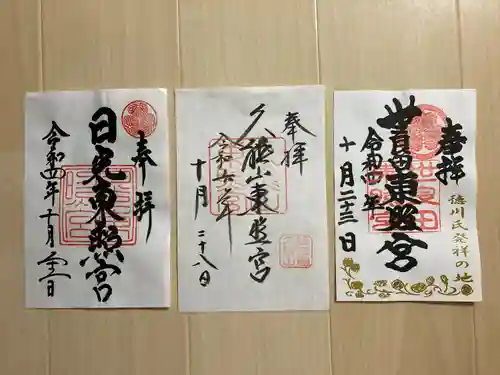 奉拝
日光東照宮
令和四年十月
奉拝
久能山東照宮
令和六年
十月二十八日
奉拝
世良田東照宮
令和四年
十月二十三日
徳川氏発祥の地
世良田